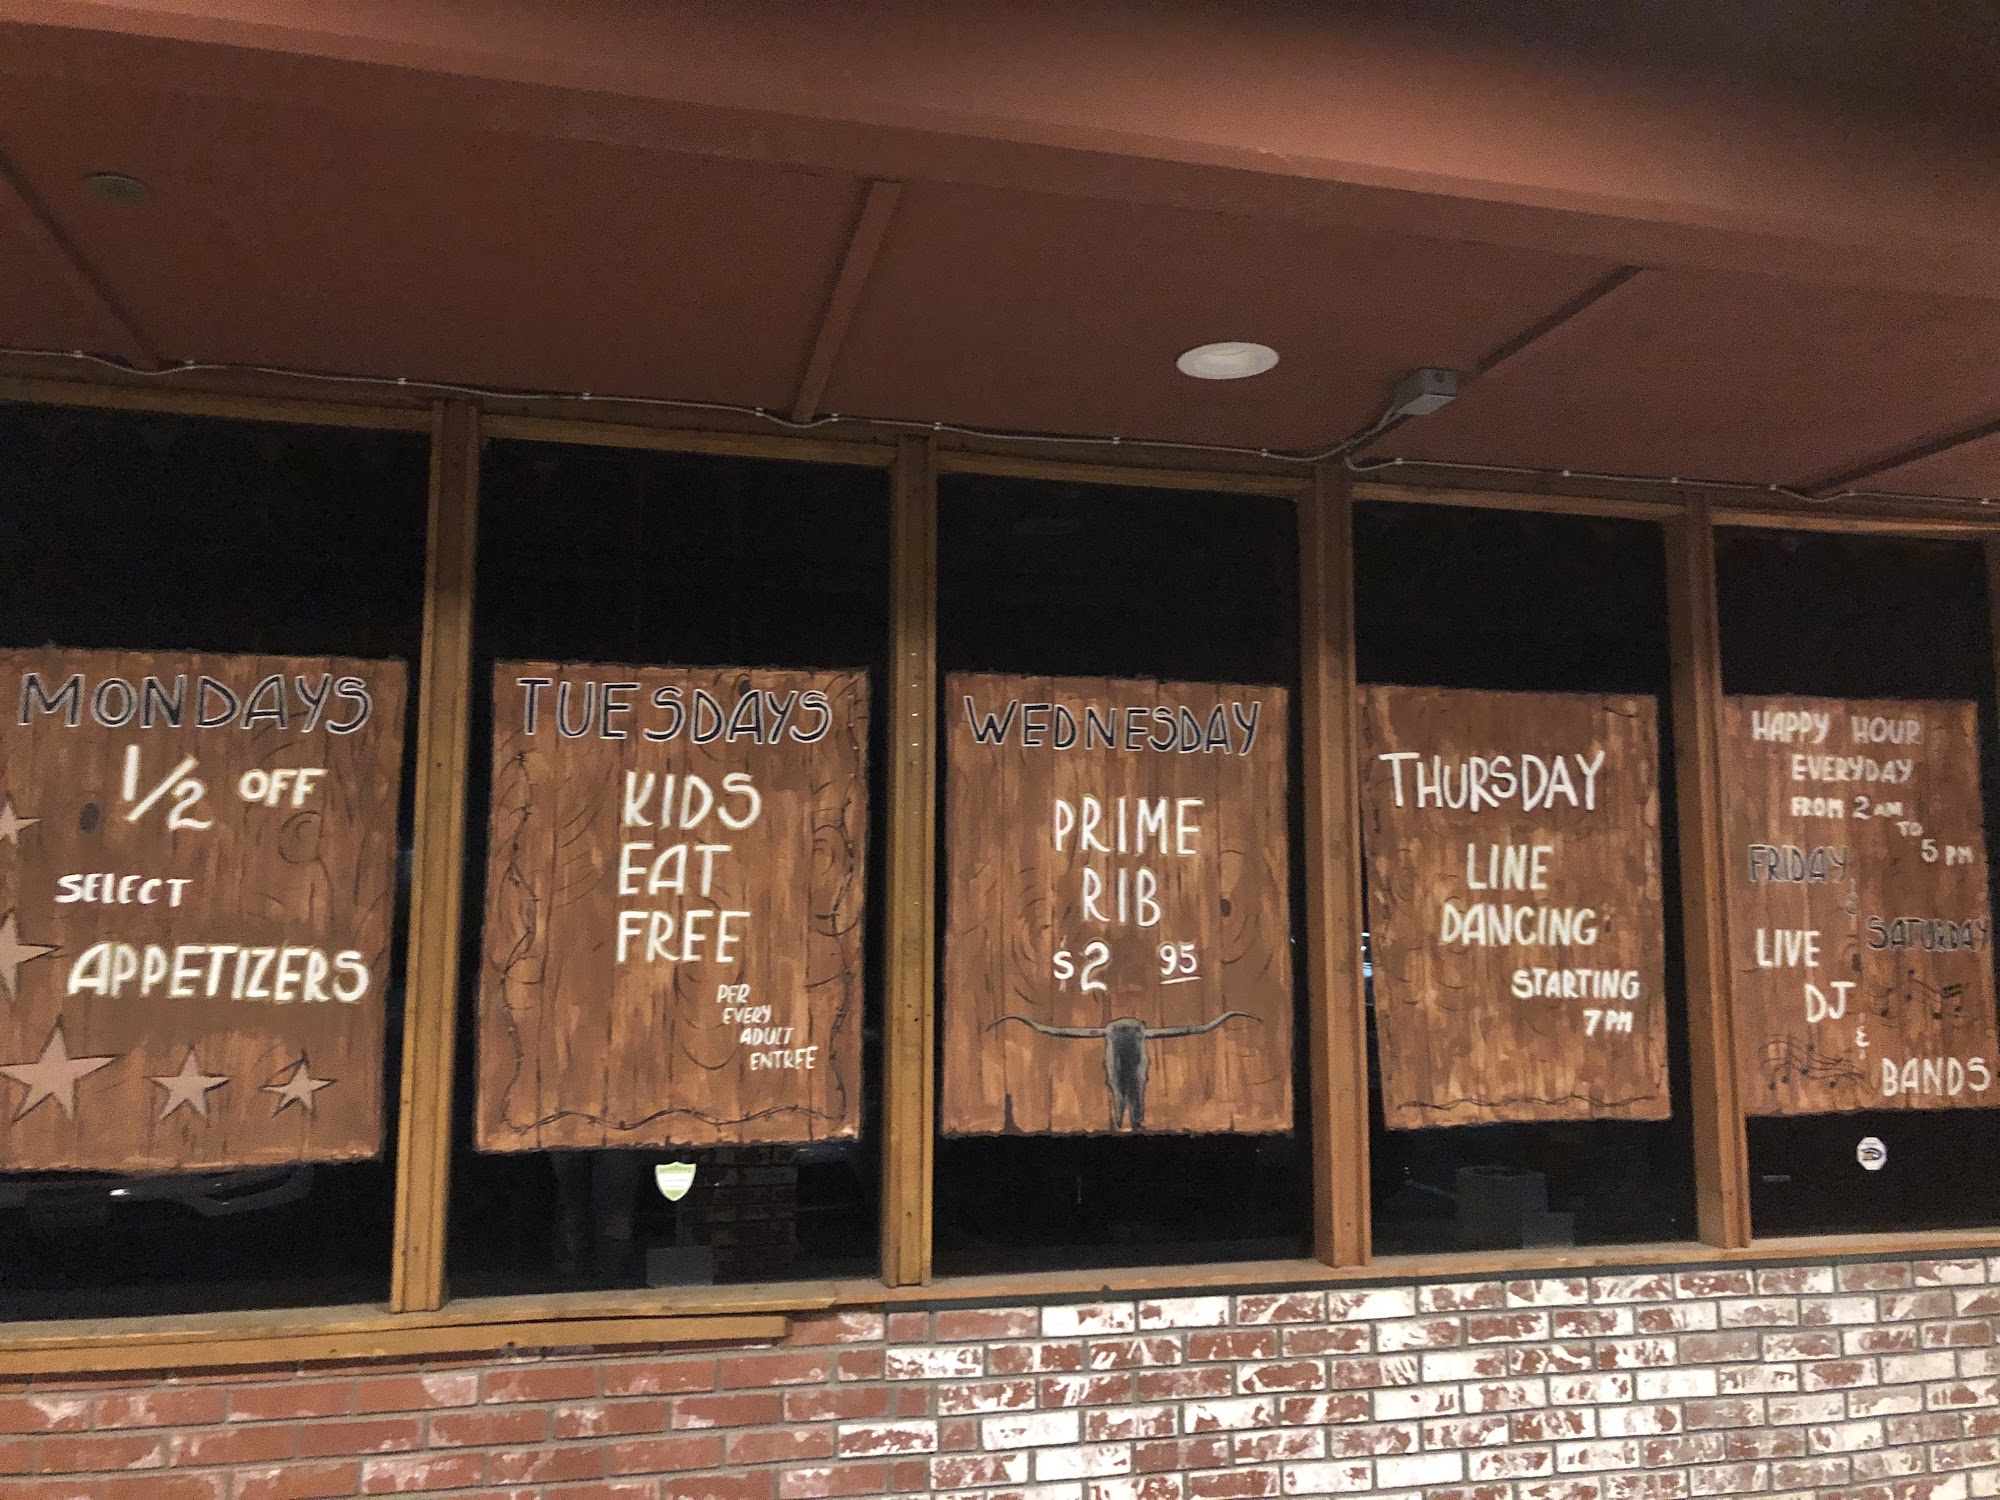 MONDAYS
1/2 OFF
SELECT
APPETIZERS
TUESDAYS
KIDS
EAT
FREE
PER
EVERY
ADULT
ENTREE
WEDNESDAY
PRIME
RIB
$2 95
THURSDAY
LINE
DANCING
STARTING
7 PM
HAPPY HOUR
EVERYDAY
FROM 2 AM
TO
5 PM
FRIDAY
&
SATURDAY
LIVE
DJ
&
BANDS